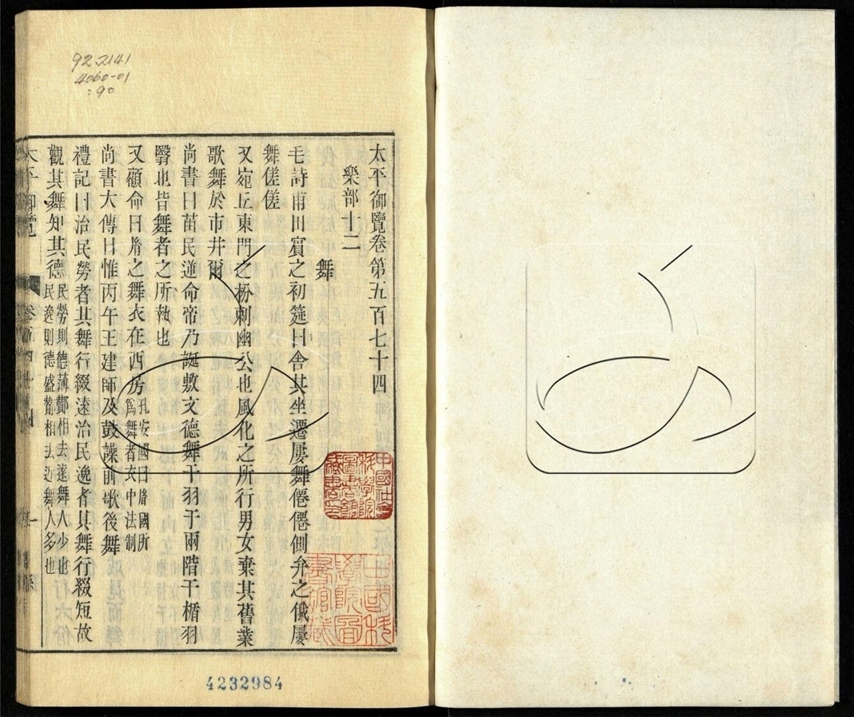 92.2141
4060-01
:90
太平御覽卷第五百七十四
樂部十二
舞
毛詩甫田賓之初筵曰舍其坐遷屢舞僊僊側弁之俄屢
舞傞傞
又宛丘東門之枌刺幽公也風化之所行男女棄其舊業
歌舞於市井爾
尚書曰苗民逆命帝乃誕敷文德舞干羽于兩階干楯羽
翳也皆舞者之所執也
又顧命曰胤之舞衣在西房孔安國曰胤國所
為舞者衣中法制
尚書大傳曰惟丙午王建師及鼓譟前歌後舞
禮記曰治民勞者其舞行綴遠治民逸者其舞行綴短故
觀其舞知其德民勞則德薄酇相去遠舞人少也
民逸則德盛酇相去近舞人多也
太平御覽
4232984